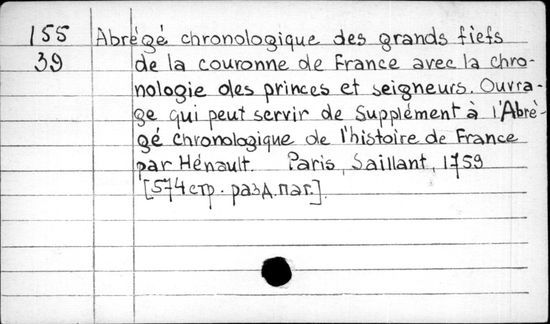 155 Abrégé chronologique des grands fiefs
39 de la couronne de France avec la chro-
nologie des princes et seigneurs. Ouvra-
ge qui peut servir de Supplément à l'Abrè-
gé chronologique de l'histoire de France
par Hénault. Paris, Saillant, 1759
[574 стр. разд. паг.].